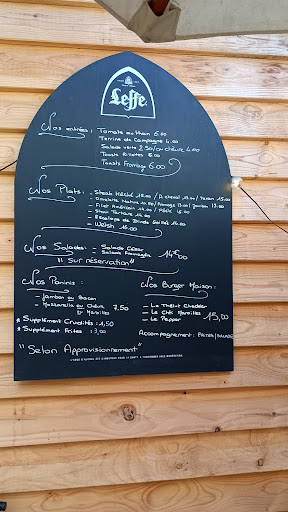 Leffe
Nos entrées : Tomate au thon 6.00
Terrine de Campagne 4.00
Salade verte 2.50/au chèvre 4.00
Toasts Rillettes 6.00
Toasts Fromage 6.00
Nos Plats : - Steak Hâché 12.00 / à cheval 13.00 /
- Omelette Nature 11.00 / Fromage 12.00 / Jambon 13.00
- Filet Américain 14.00 /
- Steak Tartare 14.00
- Escalope de Dinde
- Welsh 16.00
Nos Salades : - Salade César
- Salade
"Sur réservation"
Nos Paninis :
- Jambon ou Bacon
Mozzarella ou Chèvre 7,50
ou Maroilles
* Supplément Crudités : 1,50
* Supplément Frites : 3,00
Nos Burger Maison :
- Le Cheddar
- Le Ch'ti Maroilles 15,00
- Le Pepper
Accompagnement : FRITES / SALADE
"Selon Approvisionnement"